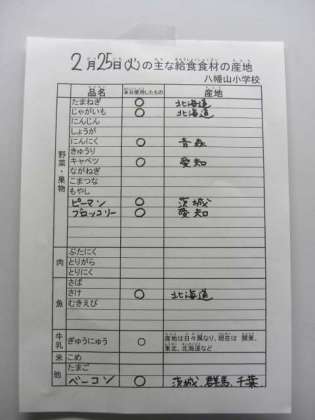 2月25日(火)の主な給食食材の産地
八幡山小学校
品名 本日使用したもの 産地
野菜・果物
たまねぎ ○ 北海道
じゃがいも ○ 北海道
にんじん
しょうが
にんにく ○ 青森
きゅうり
キャベツ ○ 愛知
ながねぎ
こまつな
もやし
ピーマン ○ 茨城
ブロッコリー ○ 愛知
肉
ぶたにく
とりがら
とりにく
魚
さば
さけ ○ 北海道
むきえび
牛乳 ぎゅうにゅう ○ 産地は日々異なり、現在は 関東、
東北、北海道など
米 こめ
他
たまご
ベーコン ○ 茨城、群馬、千葉